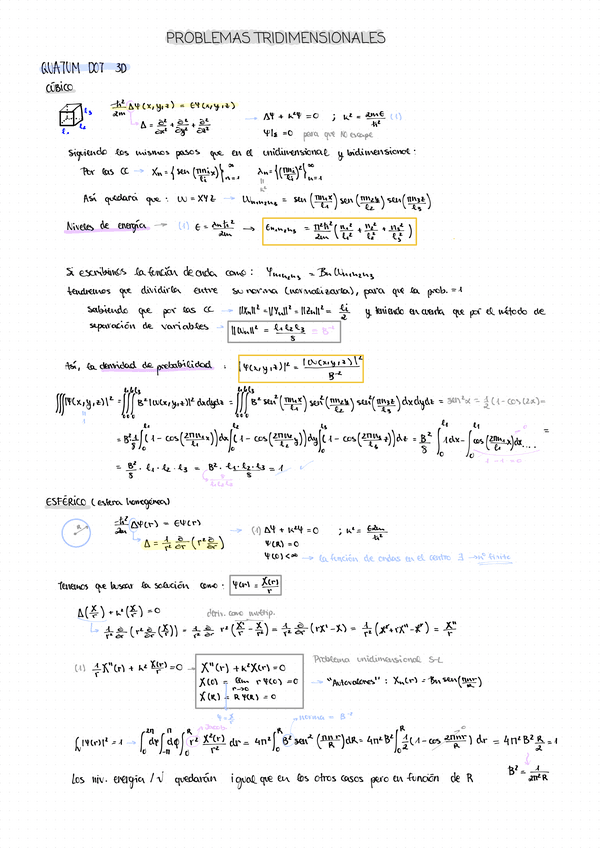 PROBLEMAS TRIDIMENSIONALES
QUATUM DOT 3D
CÚBICO
-ħ²/2m Δψ(x,y,z) = Eψ(x,y,z) → Δψ + k²ψ = 0 ; k² = 2mE/ħ² (1)
Δ = ∂²/∂x² + ∂²/∂y² + ∂²/∂z² ψ|s = 0 para que no escape
l₁ l₂ l₃
Siguiendo los mismos pasos que en el unidimensional y bidimensional:
Por las CC → Xn = {sen(πn/li x)}∞n=1 λn = {(πn/li)²}∞n=1
k²
Así quedará que: W = XYZ → Wn₁n₂n₃ = sen(πn₁x/l₁) sen(πn₂y/l₂) sen(πn₃z/l₃)
Niveles de energía → (1) E = λnħ²/2m → En₁n₂n₃ = π²ħ²/2m (n₁²/l₁² + n₂²/l₂² + n₃²/l₃²)
Si escribimos la función de onda como: Ψn₁n₂n₃ = Bn Wn₁n₂n₃
tendremos que dividirla entre su norma (normalizarla), para que la prob. = 1
Sabiendo que por las CC → ||Xn||² = ||Yn||² = ||Zn||² = li/2 y teniendo en cuenta que por el método de
separación de variables → ||Wn||² = l₁l₂l₃/8 = B⁻²
Así, la densidad de probabilidad : |ψ(x,y,z)|² = |W(x,y,z)|²/B⁻²
∭|ψ(x,y,z)|² = ∭ B²|W(x,y,z)|² dxdydz = ∭ B² sen²(πn₁x/l₁) sen²(πn₂y/l₂) sen²(πn₃z/l₃) dxdydz = sen²x = 1/2 (1-cos(2x)) =
= B² 1/8 ∫(1-cos(2πn₁x/l₁))dx ∫(1-cos(2πn₂y/l₂))dy ∫(1-cos(2πn₃z/l₃))dz = B²/8 ∫1dx - ∫cos(2πn₁x/l₁)dx .... =
= B²/8 · l₁ · l₂ · l₃ = B² · l₁·l₂·l₃/8 = 1 ✓
ESFÉRICO (esfera homogénea)
R
-ħ²/2m Δψ(r) = Eψ(r) → (1) Δψ + k²ψ = 0 ; k² = E2m/ħ²
Δ = 1/r² ∂/∂r (r² ∂/∂r) ψ(R) = 0
ψ(0) < ∞ → la función de ondas en el centro ∃ → nº finito
Tenemos que buscar la solución como: ψ(r) = X(r)/r
Δ(X/r) + k²(X/r) = 0 deriv. como multip.
1/r² ∂/∂r (r² ∂/∂r (X/r)) = 1/r² ∂/∂r r² (X'/r - X/r²) = 1/r² ∂/∂r (rX' - X) = 1/r² (X' + rX'' - X') = X''/r
(1) 1/r X''(r) + k² X(r)/r = 0 → X''(r) + k²X(r) = 0 Problema unidimensional S-L
X(0) = lim r→0 rψ(0) = 0 → "Autovalores" : Xn(r) = Bn sen(πnr/R)
X(R) = Rψ(R) = 0
ψ = X/r norma = B⁻²
∫|ψ(r)|² = 1 → ∫dφ ∫dϕ ∫ r² X²(r)/r² dr = 4π² ∫ B² sen²(πnr/R) dR = 4π²B² ∫ 1/2 (1-cos 2πnr/R) dr = 4π²B² R/2 = 1
Los niv. energía / √ quedarán igual que en los otros casos pero en función de R B² = 1/2π²R